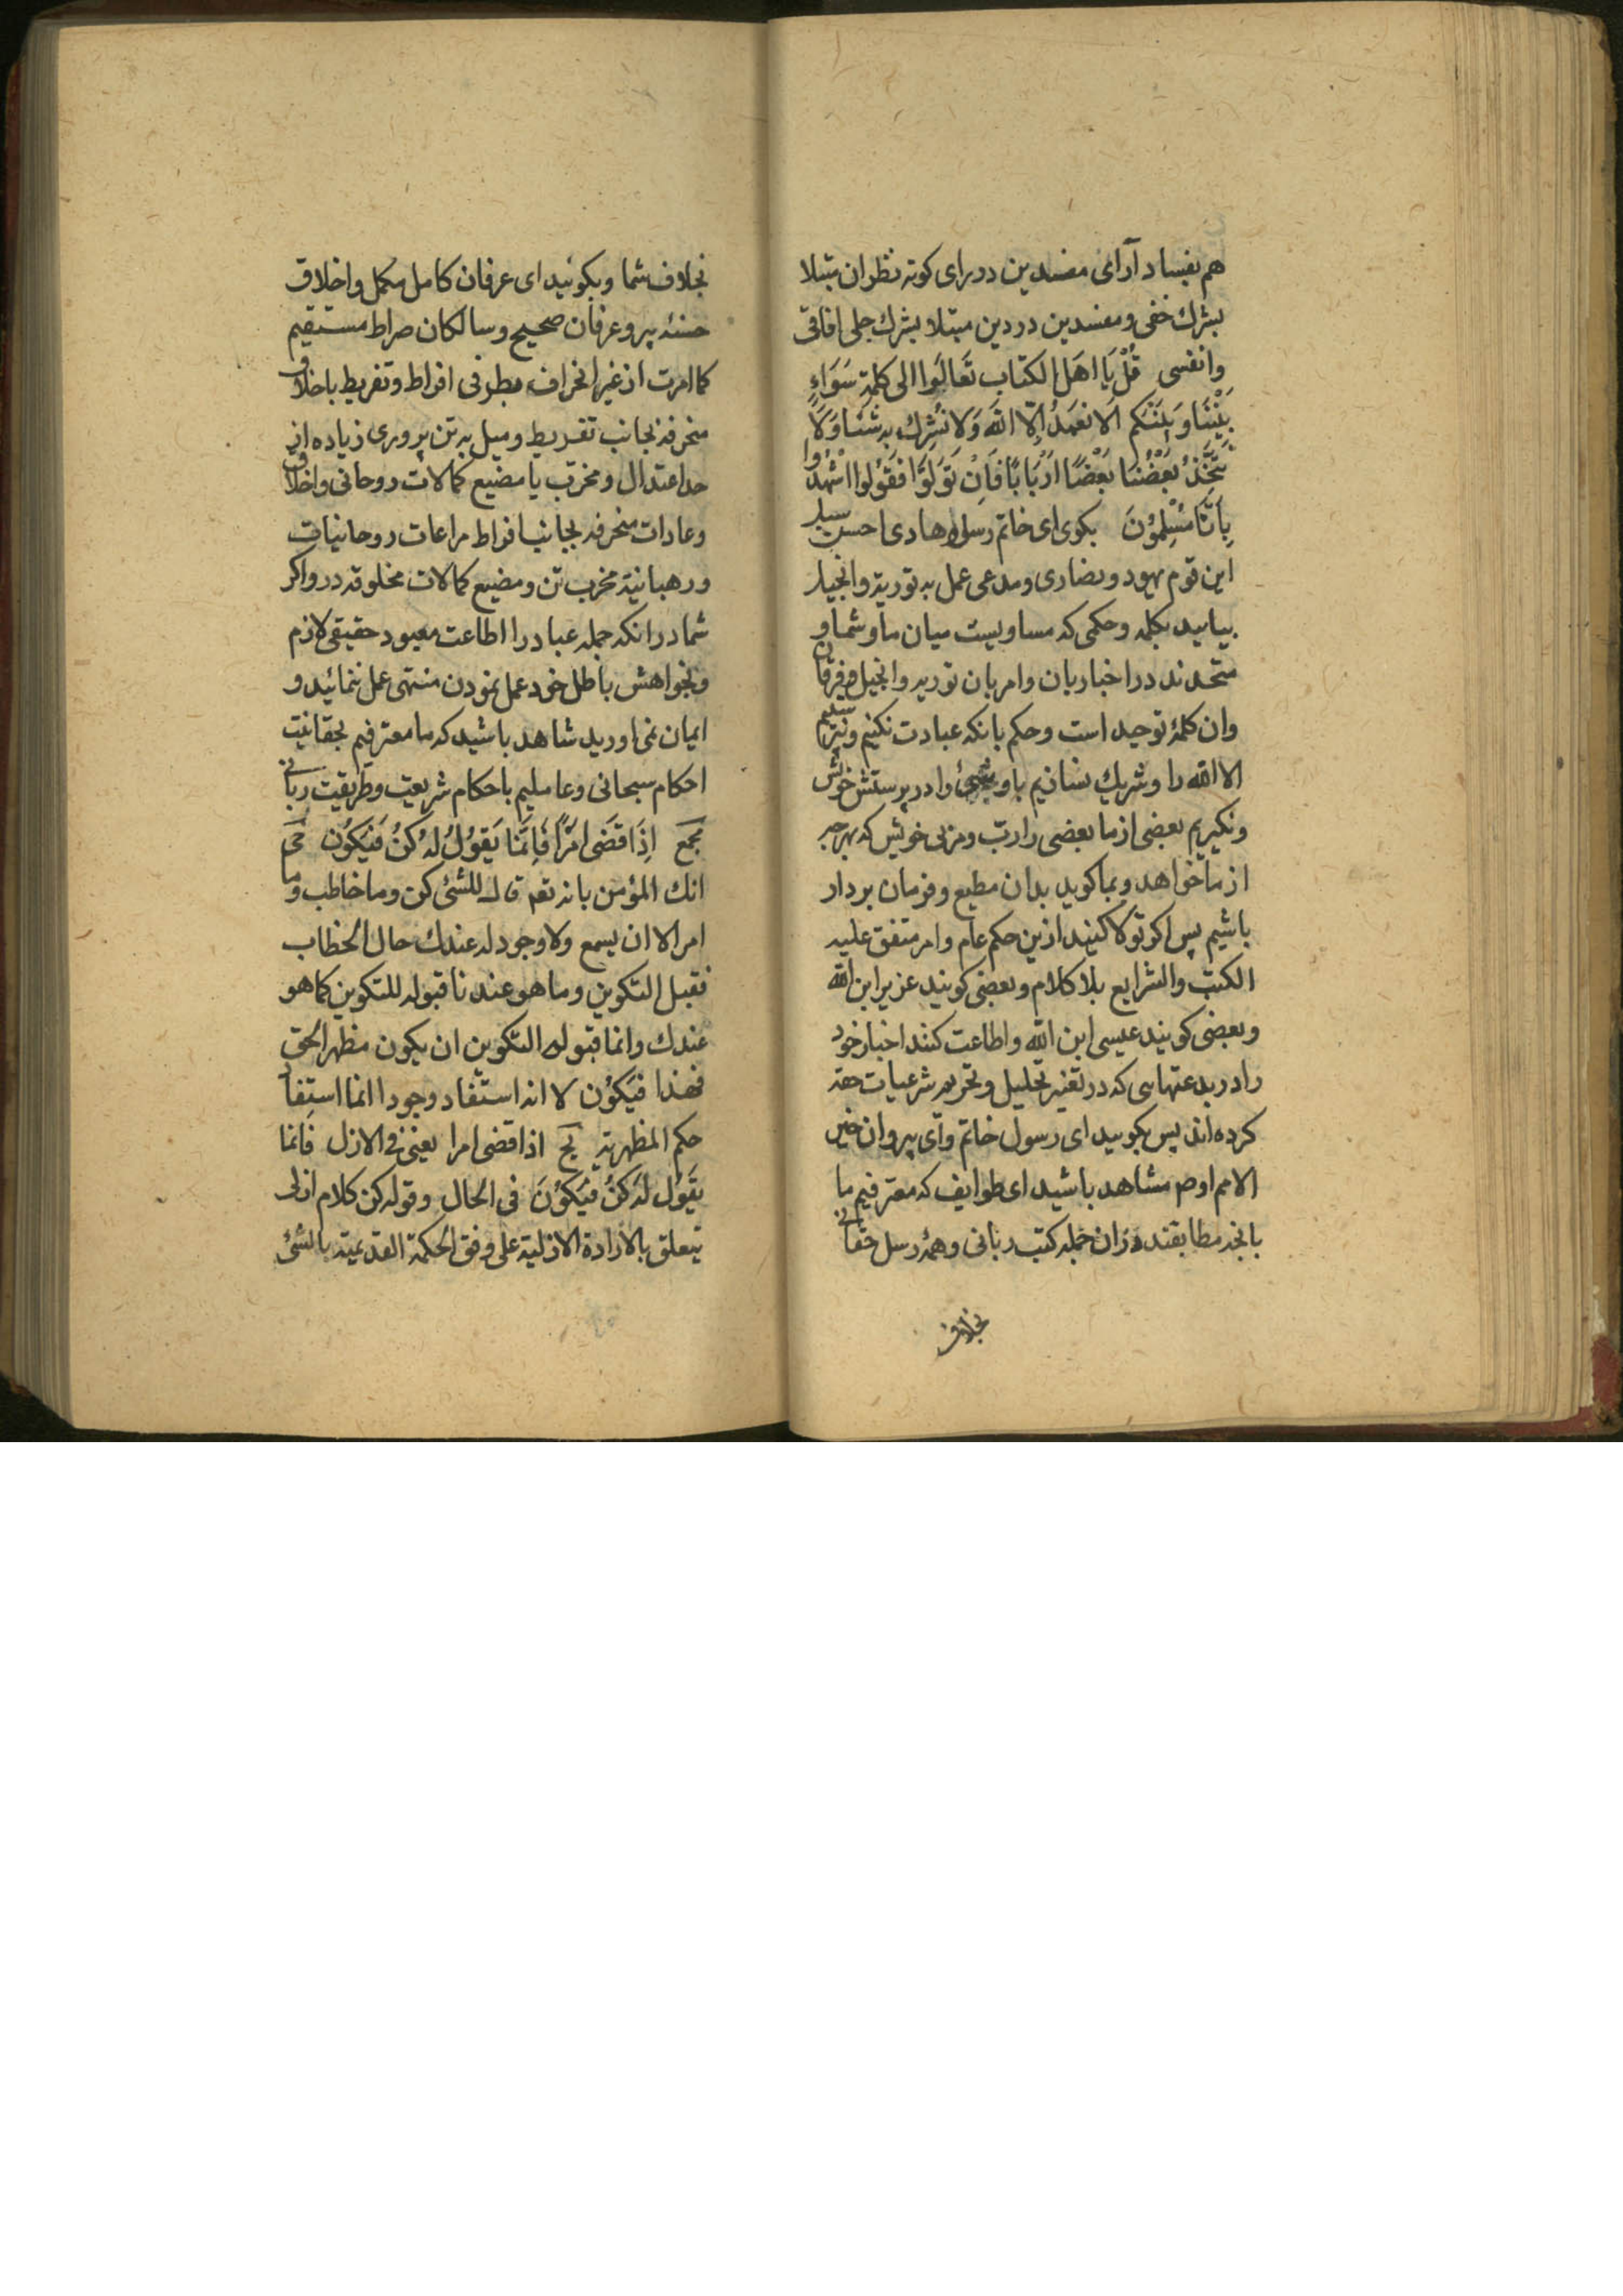 هم بفساد آرای مفسدین در رای کوته نظران مبتلا
بشرك خفی و مفسدین در دین مبتلا بشرك جلی افاقی
وانفسی قُلْ یَا اهَل الکتاب تَعَالَوا الی کلمة سَوَاءٍ
بَیْنَنَا وَ بَیْنَکم اَلا نعبَدُ اِلّا اللهَ وَلا نُشرِك به شَیئا وَلَا
یَتَّخِذُ بَعْضُنَا بَعْضًا اَرْبَابًا فَاِنْ تَوَلَوْا فَقُوْلُوا اشْهَدُوا
بِاَنَّا مُسْلِمُوْنَ بکوی ای خاتم رسول هادی احسن سبل
این قوم یهود و نصاری و مدعی عمل به توریة وانجیل
بیایید بکلمه و حکمی که مساویست میان ما و شما و
متحدند در اخبار بان وامر بان توریه وانجیل و فرقان
وان کلمهٔ توحید است و حکم بانکه عبادت نکنیم
الا الله را و شریك نسازیم باو شیئ را در پرستش خویش
ونکیریم بعضی از ما بعضی را ربّ و مربی خویش که بهر چه
از ما خواهد و بما کوید بدان مطیع و فرمان بردار
باشیم پس اکر تولا کنند ازین حکم عام وامر متفق علیه
الکتب والشرایع بلا کلام و بعضی کویند عزیر ابن الله
و بعضی کویند عیسی ابن الله و اطاعت کنند احبار خود
را در بدعتهایی که در تغیر تحلیل و تحریم شرعیات حقه
کرده اند پس بکویید ای رسول خاتم و ای پیروان خیر
الامم او مشاهد باشید ای طوایف که معترفیم ما
بانچه مطابقند دران جمله کتب ربانی و همهٔ رسل حقانی
بخلاف
بخلاف شما و بکوئید ای عرفان کامل مکمل واخلاق
حسنه پیرو عرفان صحیح و سالکان صراط مستقیم
کما امرت از غیر انحراف بطرفی افراط و تفریط باخلاق
منحرفه بجانب تفریط و میل به تن پروری زیاده از
حد اعتدال و مخرّب یا مضیع کمالات روحانی واخلاق
وعادات منحرفه بجانب افراط مراعات روحانیات
ورهبانیة مخرب تن و مضیع کمالات مخلوقه در و اکر
شما درانکه جمله عباد را اطاعت معبود حقیقی لازم
وبخواهش باطل خود عمل نمودن منتهی عمل ننمائید و
ایمان نمی اورید شاهد باشید که ما معترفیم بحقانیت
احکام سبحانی وعاملیم باحکام شریعت و طریقت ربانی
مجمع اِذَا قَضَی اَمْرًا فَاِنَّمَا یَقوُلُ لَهُ کُنْ فَیَکوُن محی
انك المؤمن بانه تعه قال للشئ کن و ما خاطب وما
امر الا ان یسمع ولا وجود له عندك حال الخطاب
فقبل التکوین وما هو عندنا قبوله للتکوین کما هو
عندك وانما قبوله التکوین ان یکون مظهر الحق
فهذا فَیَکوُن لا انه استفاد وجودا انما استفاد
حکم المظهریه بج اذا قضی امرا یعنی فی الازل فانما
یقَوُل لَهُ کُنْ فَیَکوُنَ فی الحال وقوله کن کلام ازلی
یتعلق بالارادة الازلیة علی وفق الحکمة القدیمیة بالشئ